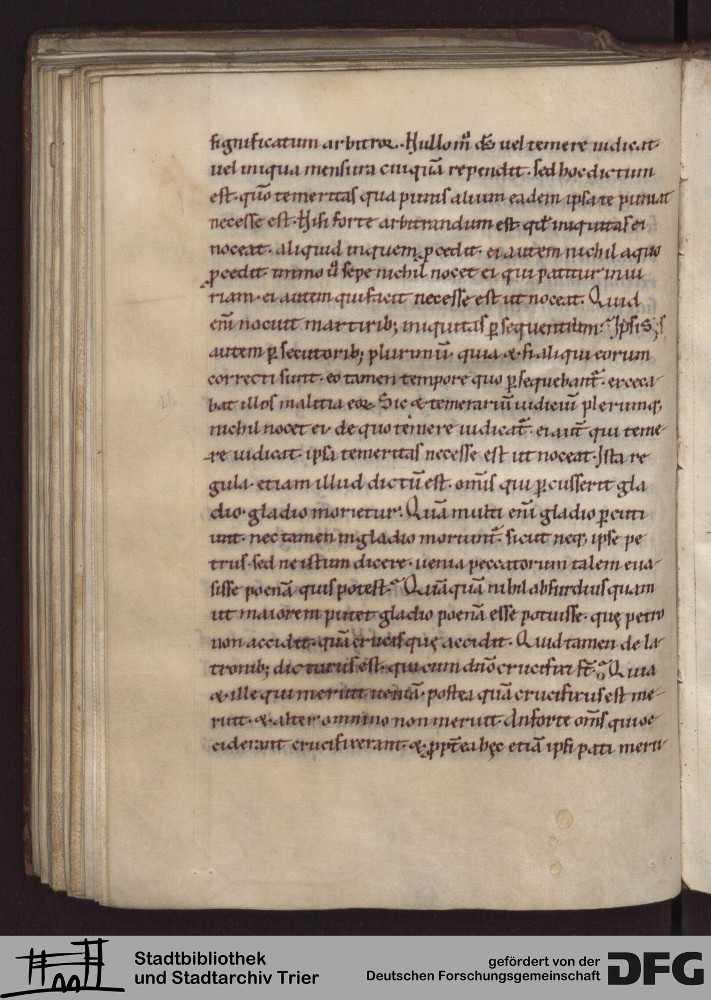 significatum arbitror. Nullo mͦ ds̄ uel temere iudicat.
uel iniqua mensura cuiquā rependit. sed hoc dictum
est. qm̄ temeritas qua punis alium eadem ipsa te puniat
necesse est. Nisi forte arbitrandum est qd̄ iniquitas ei
noceat. aliquid in quem ꝓcedit. ei autem nichil a quo
ꝓcedit. immo ů sepe nichil nocet ei qui patitur iniu
riam. ei autem qui facit necesse est ut noceat. Quid
em̄ nocuit martirib; iniquitas ꝑsequentium? Ipsis
autem ꝑsecutorib; plurimū. quia & si aliqui eorum
correcti sunt. eo tamen tempore quo ꝑsequebant̄. exceca
bat illos malitia eoꝝ. Sic & temerariū iudiciū plerumq;
nichil nocet ei de quo temere iudicat̄. ei aut̄ qui teme
re iudicat. ipsa temeritas necesse est ut noceat. Ista re
gula. etiam illud dictū est. om̄is qui ꝑcusserit gla
dio. gladio morietur. Quā multi em̄ gladio ꝑcuti
unt. nec tamen in gladio moriunt̄. sicut neq; ipse pe
trus. sed ne istum dicere. uenia peccatorum talem eua
sisse poenā quis potest? Quāquā nihil absurdius quam
ut maiorem putet gladio poenā esse potuisse. quę petro
non accidit. quā crucis quę accidit. Quid tamen de la
tronib; dicturus est. qui cum dn̄o crucifixi st̄? Quia
& ille qui meruit ueniā. postea quā crucifixus est me
ruit. & alter omnino non meruit. An forte om̄s quos oc
ciderant crucifixerant. & ꝓpt̄ea hęc etiā ipsi pati meru
Stadtbibliothek
und Stadtarchiv Trier
gefördert von der
Deutschen Forschungsgemeinschaft
DFG